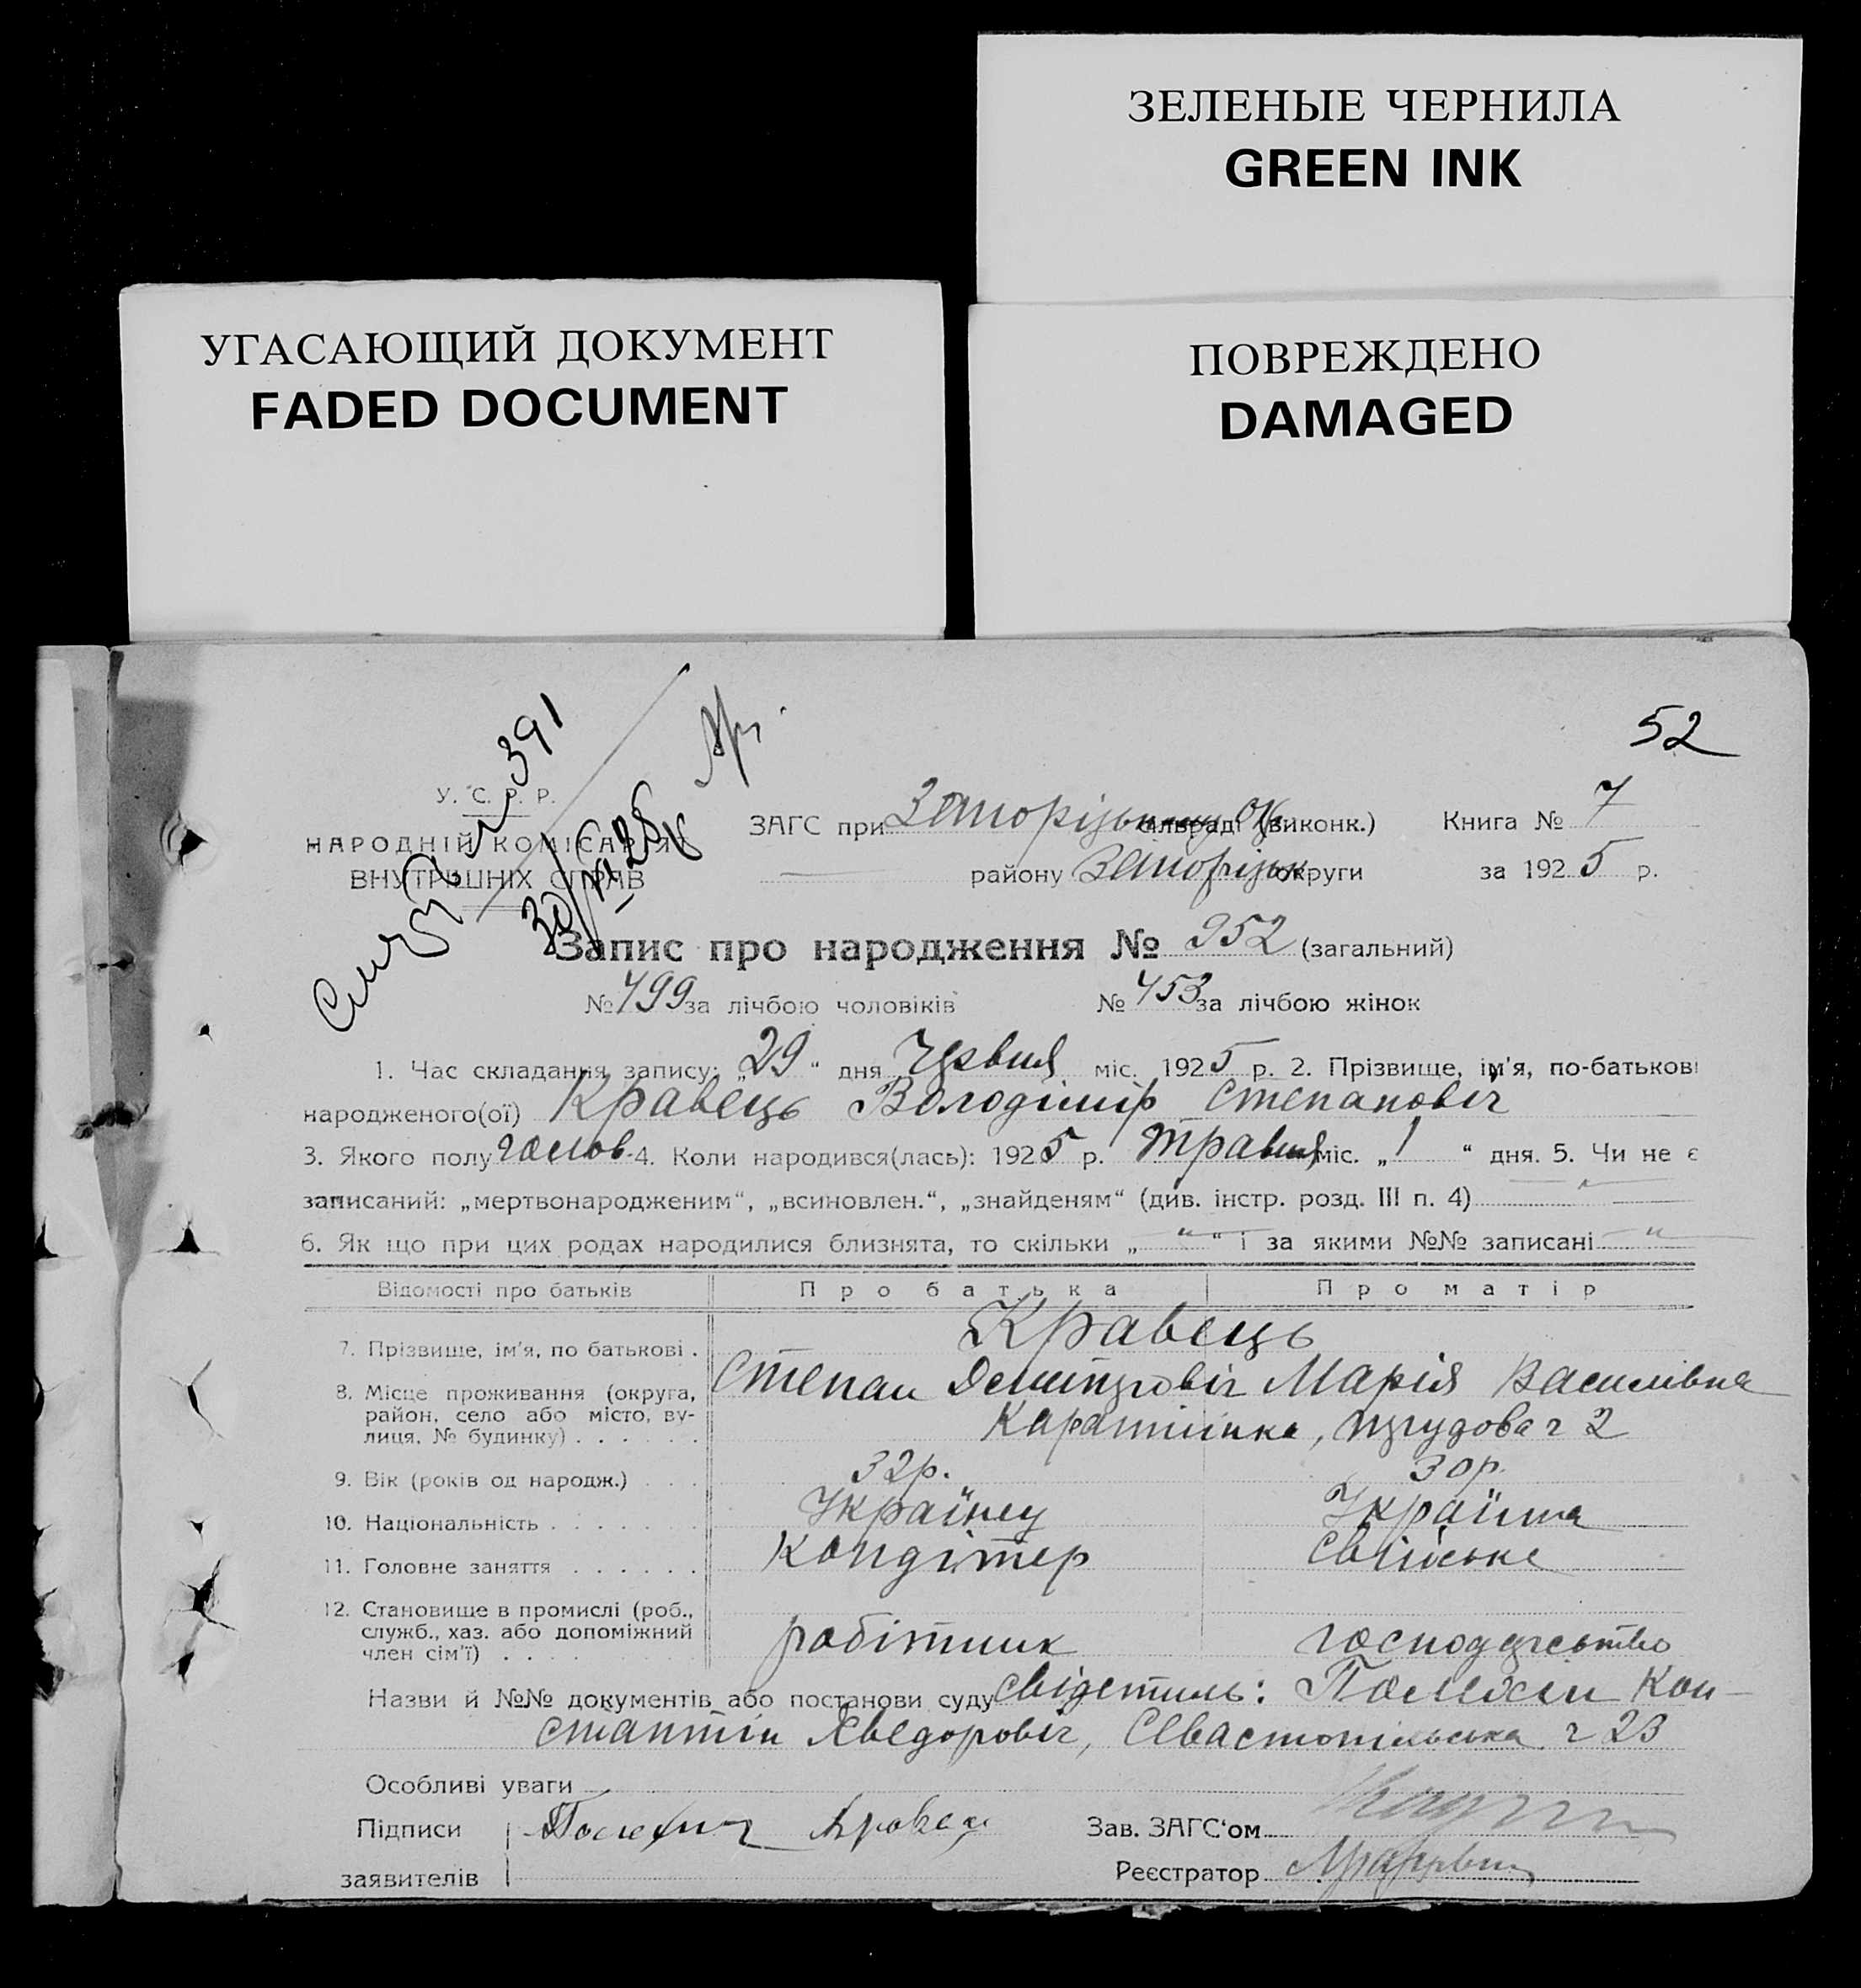 ЗЕЛЕНЫЕ ЧЕРНИЛА
GREEN INK
УГАСАЮЩИЙ ДОКУМЕНТ
FADED DOCUMENT
ПОВРЕЖДЕНО
DAMAGED
52
391
У. С. Р. Р.
НАРОДНІЙ КОМІСАРІЯТ
ВНУТРІШНІХ СПРАВ
ЗАГС при сільраді (виконк.) Книга № 7
району округи за 1925 р.
Запис про народження № 952 (загальний)
№ 499 за лічбою чоловіків № 453 за лічбою жінок
1. Час складання запису: „29“ дня Червня міс. 1925 р. 2. Прізвище, ім'я, по-батькові
народженого(ої) Кравець Володімір Степановіч
3. Якого полу чолов. 4. Коли народився(лась): 1925 р. Травня міс. „1“ дня. 5. Чи не є
записаний: „мертвонародженим“, „всиновлен.“, „знайденям“ (див. інстр. розд. III п. 4)
6. Як що при цих родах народилися близнята, то скільки „ “ і за якими №№ записані
Відомості про батьків Про батька Про матір
7. Прізвище, ім'я, по батькові . Кравець
Степан Марія Василівна
8. Місце проживання (округа,
район, село або місто, ву-
лиця, № будинку) . . . . . . ч 2
9. Вік (років од народж.) . . . 32р. 30р.
10. Національність . . . . . . Українец Українка
11. Головне заняття . . . . . . Кондітер
12. Становище в промислі (роб.,
служб., хаз. або допоміжний
член сім'ї) . . . . робітник господарство
Назви й №№ документів або постанови суду свідетиль: Кон-
стантін Хведоровіч, Севастопільська ч 23
Особливі уваги
Підписи Зав. ЗАГС'ом
заявителів Реєстратор